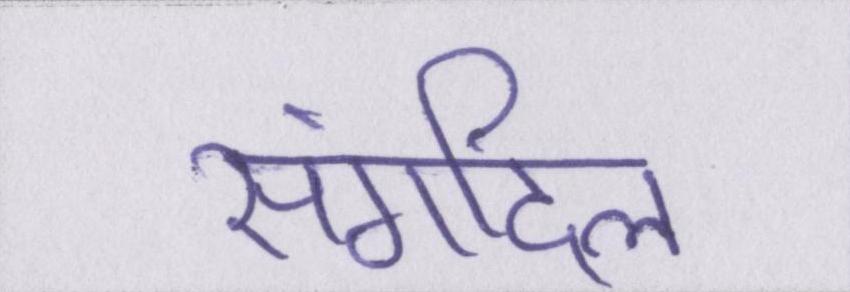 संगदिल